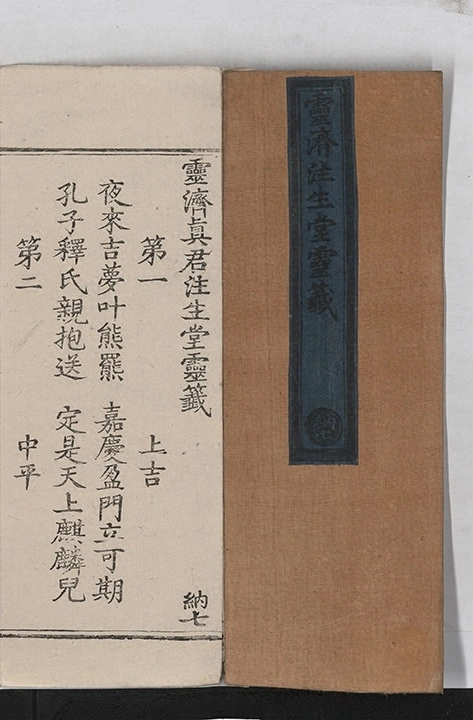 靈濟注生堂靈籤
納七
靈濟眞君注生堂靈籤
納七
第一 上吉
夜來吉夢叶熊羆 嘉慶盈門立可期
孔子釋氏親抱送 定是天上麒麟兒
第二 中平